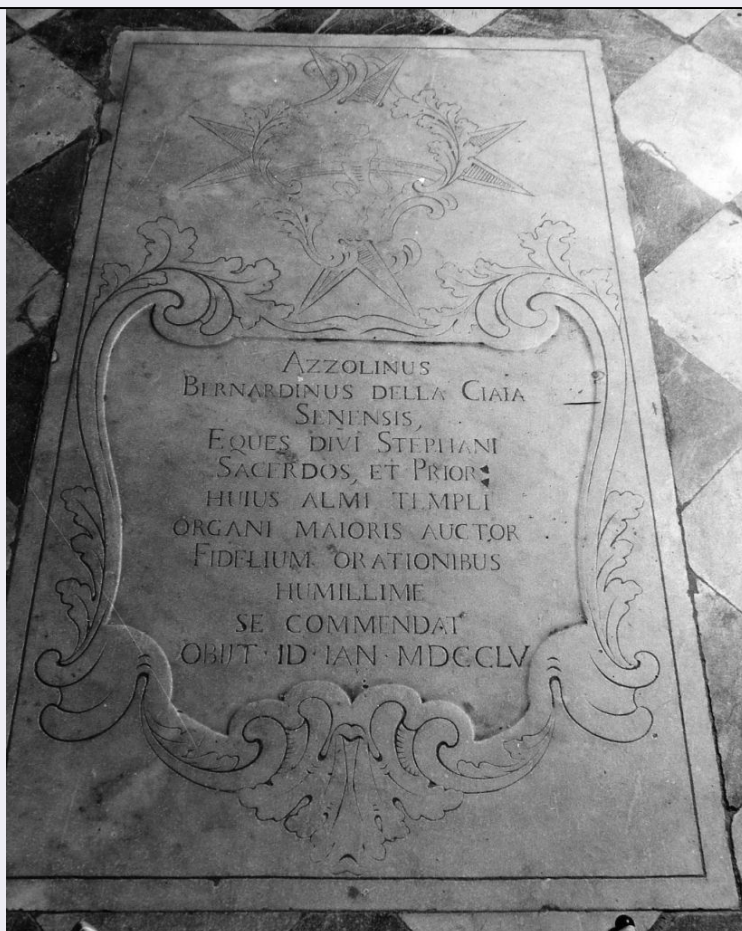 AZZOLINUS
BERNARDINUS DELLA CIAIA
SENENSIS,
EQUES DIVI STEPHANI
SACERDOS, ET PRIOR:
HUIUS ALMI TEMPLI
ORGANI MAIORIS AUCTOR
FIDELIUM ORATIONIBUS
HUMILLIME
SE COMMENDAT
OBIJT · ID · IAN · MDCCLV